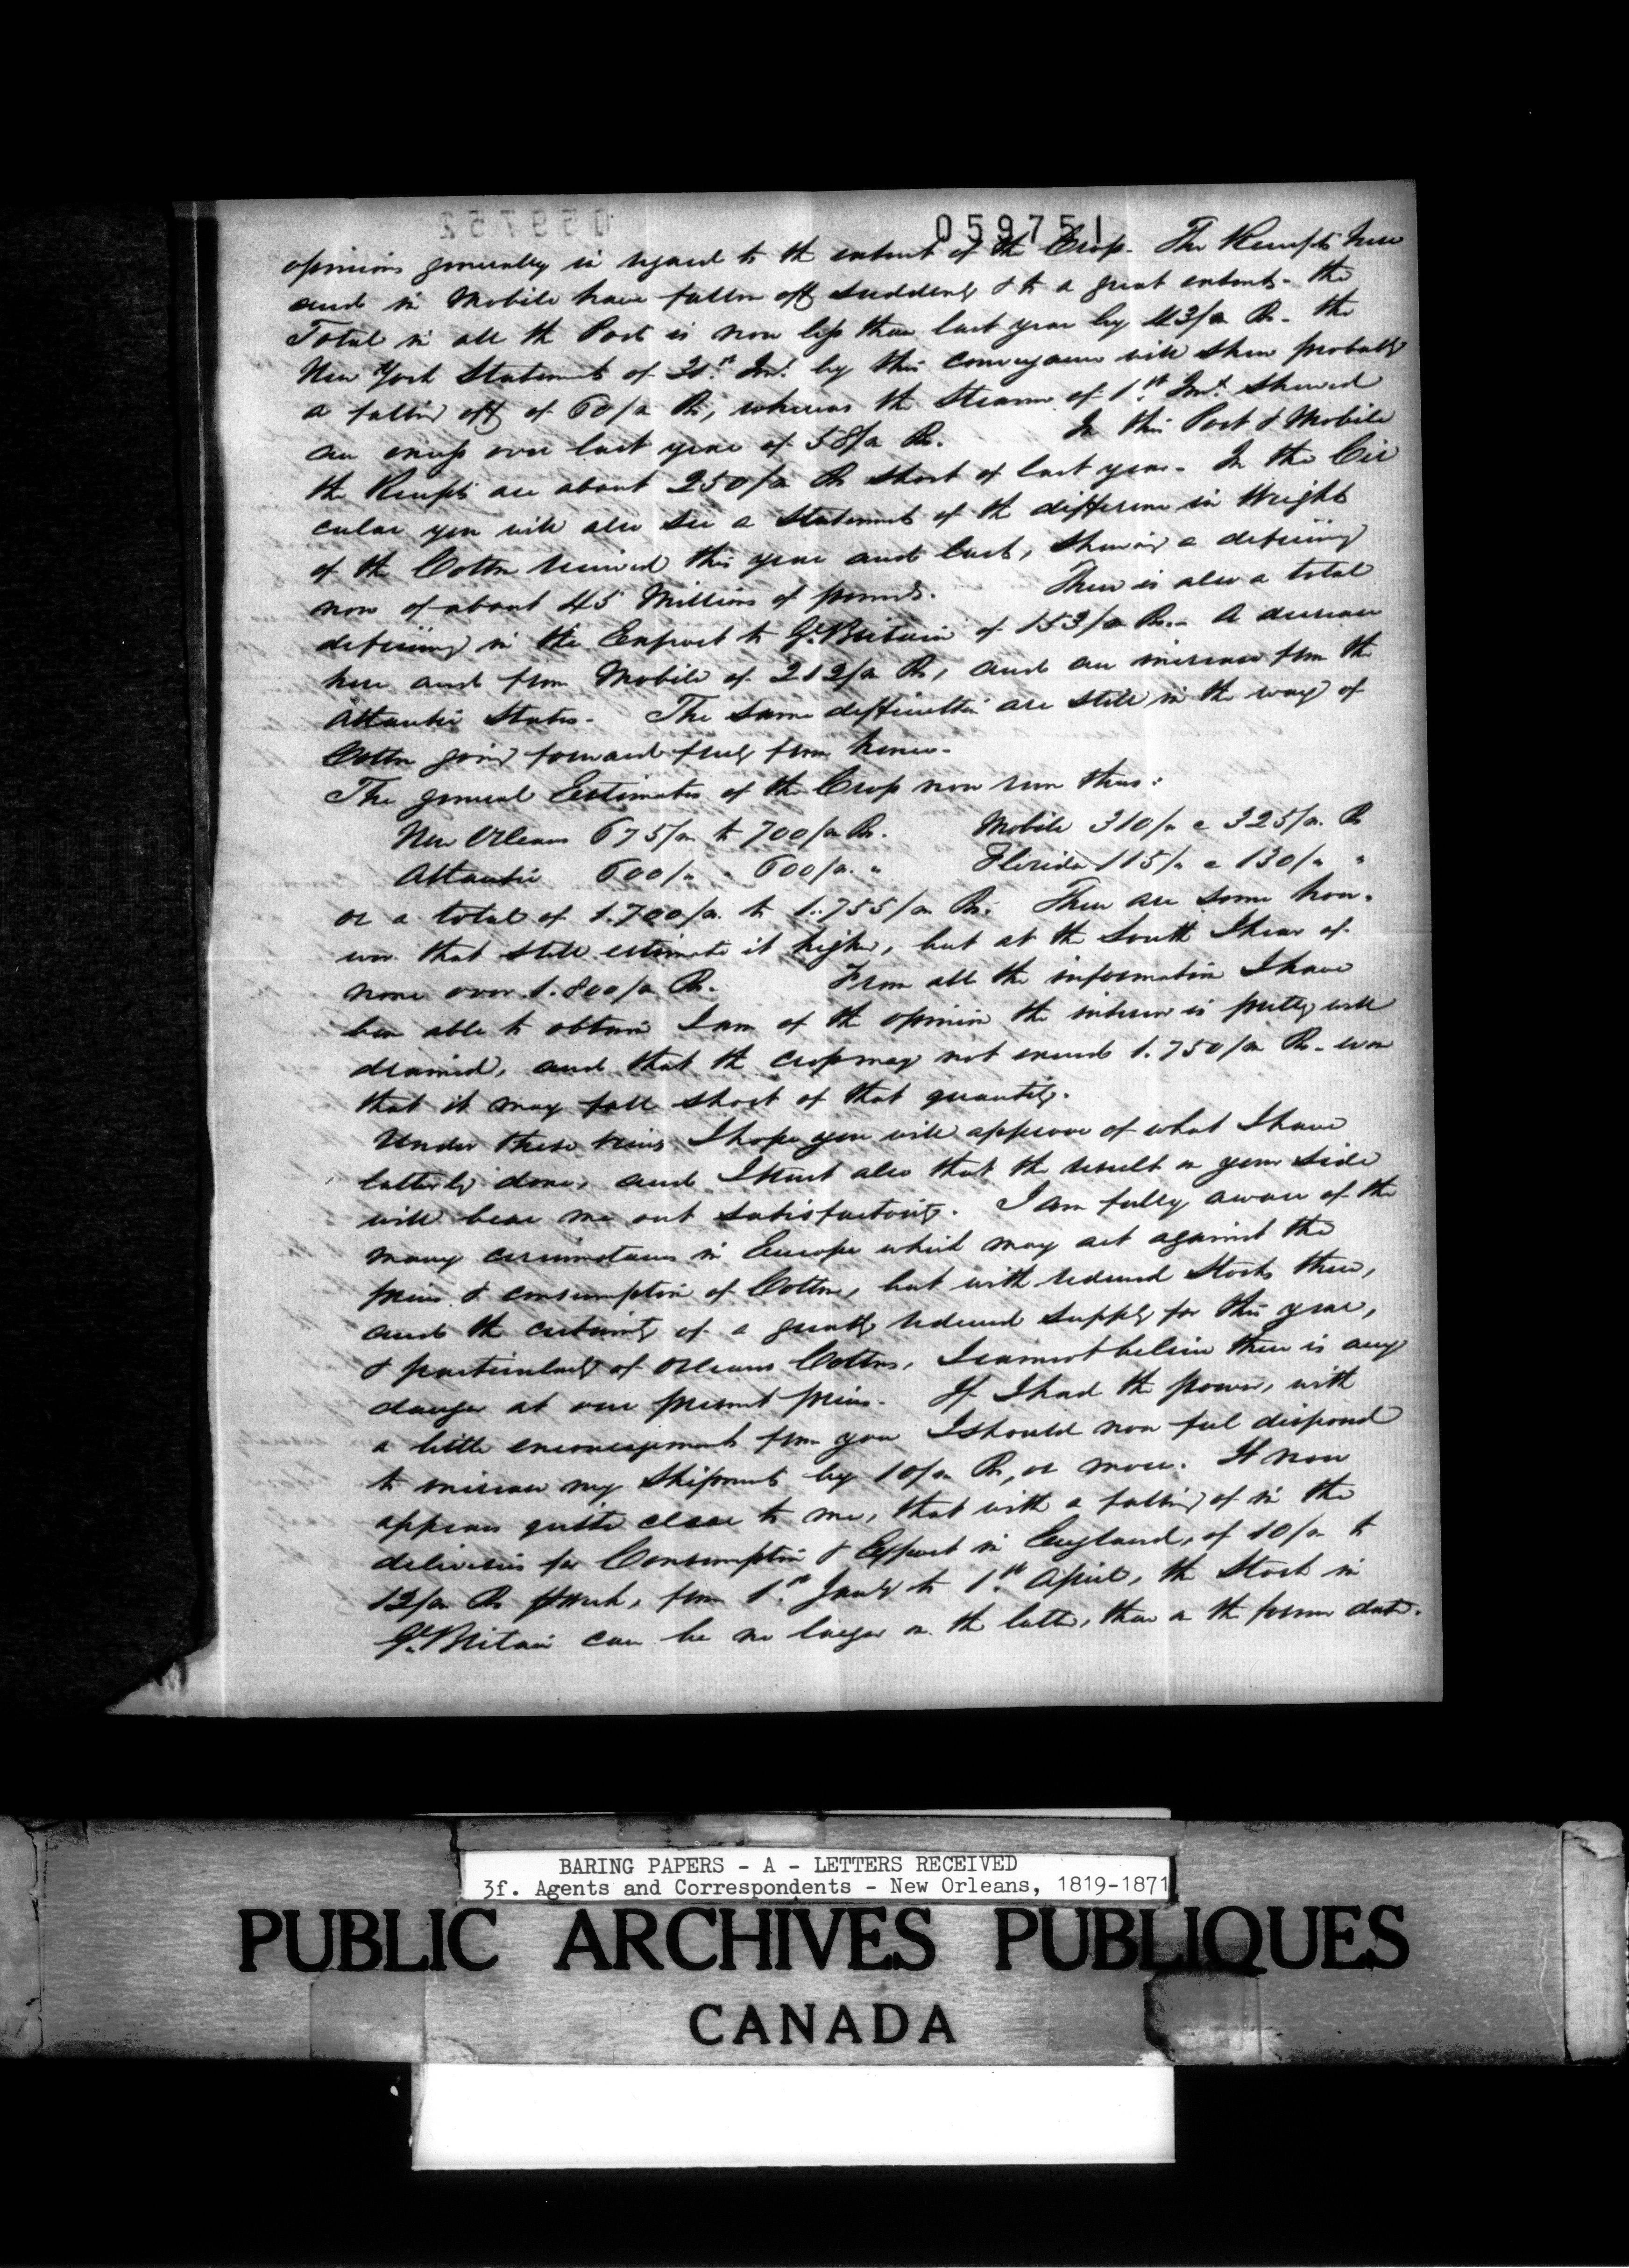 059751
059752
opinions generally in regard to th extent of th Crop. The Receipts here
and in Mobile have fallen off suddenly & to a great extent. the
Total in all th Ports is now less than last year by 43/m Bs. the
New York Statement of 21st Inst. by this conveyance will shew probably
a falling off of 60/m Bs, whereas the Steamer of 1st Inst. shewed
an excess over last year of 58/m Bs. In this Port & Mobile
the Receipts are about 250/m Bs short of last year. In the Cir
cular you will also see a Statement of the difference in Weight
of th Cotton received this year and last, shewing a deficiency
now of about 45 Millions of pounds. There is also a total
deficiency in the Export to Gt. Britain of 153/m Bs. A decrease
here and from Mobile of 212/m Bs, and an increase from the
Atlantic States. The same difficulties are still in the way of
Cotton going forward freely from hence.
The general Estimates of the Crop now run thus:
New Orleans 675/m to 700/m Bs. Mobile 310/m a 325/m. Bs
Atlantic 600/m " 600/m. " Florida 115/m a 130/m "
or a total of 1.700/m. to 1.755/m Bs. There are some how-
ever that still estimate it higher, but at the South I hear of
none over 1.800/m Bs. From all the information I have
been able to obtain I am of the opinion the interior is pretty well
drained, and that th crop may not exceed 1.750/m Bs. even
that it may fall short of that quantity.
Under these views I hope you will approve of what I have
latterly done, and I trust also that the result on your side
will bear me out satisfactorily. I am fully aware of the
many circumstances in Europe which may act against the
prices & consumption of Cotton, but with reduced Stocks there,
and th certainty of a greatly reduced supply for this year,
& particularly of Orleans Cottons, I cannot believe there is any
danger at our present prices. If I had the power, with
a little encouragement from you I should now feel disposed
to increase my Shipments by 10/m Bs, or more. It now
appears quite clear to me, that with a falling of in the
deliveries for Consumption & Export in England, of 10/m to
12/m Bs week, from 1st Jany to 1st April, the Stock in
Gt. Britain can be no larger on the latter, than on the former date.
BARING PAPERS - A - LETTERS RECEIVED
3f. Agents and Correspondents - New Orleans, 1819-1871
PUBLIC ARCHIVES PUBLIQUES
CANADA